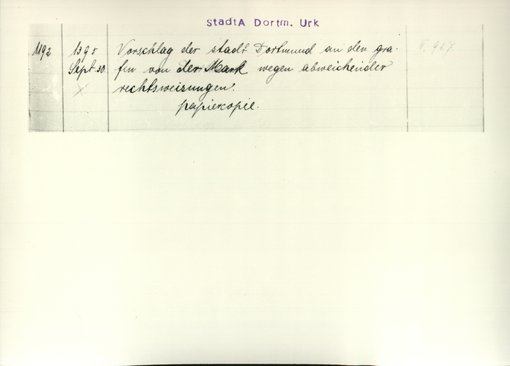 StadtA Dortm. Urk
1192 1395 Vorschlag der stadt Dortmund an den gra-
Sept 30 fen von der Mark wegen abweichender
rechtsweisungen.
papierkopie.